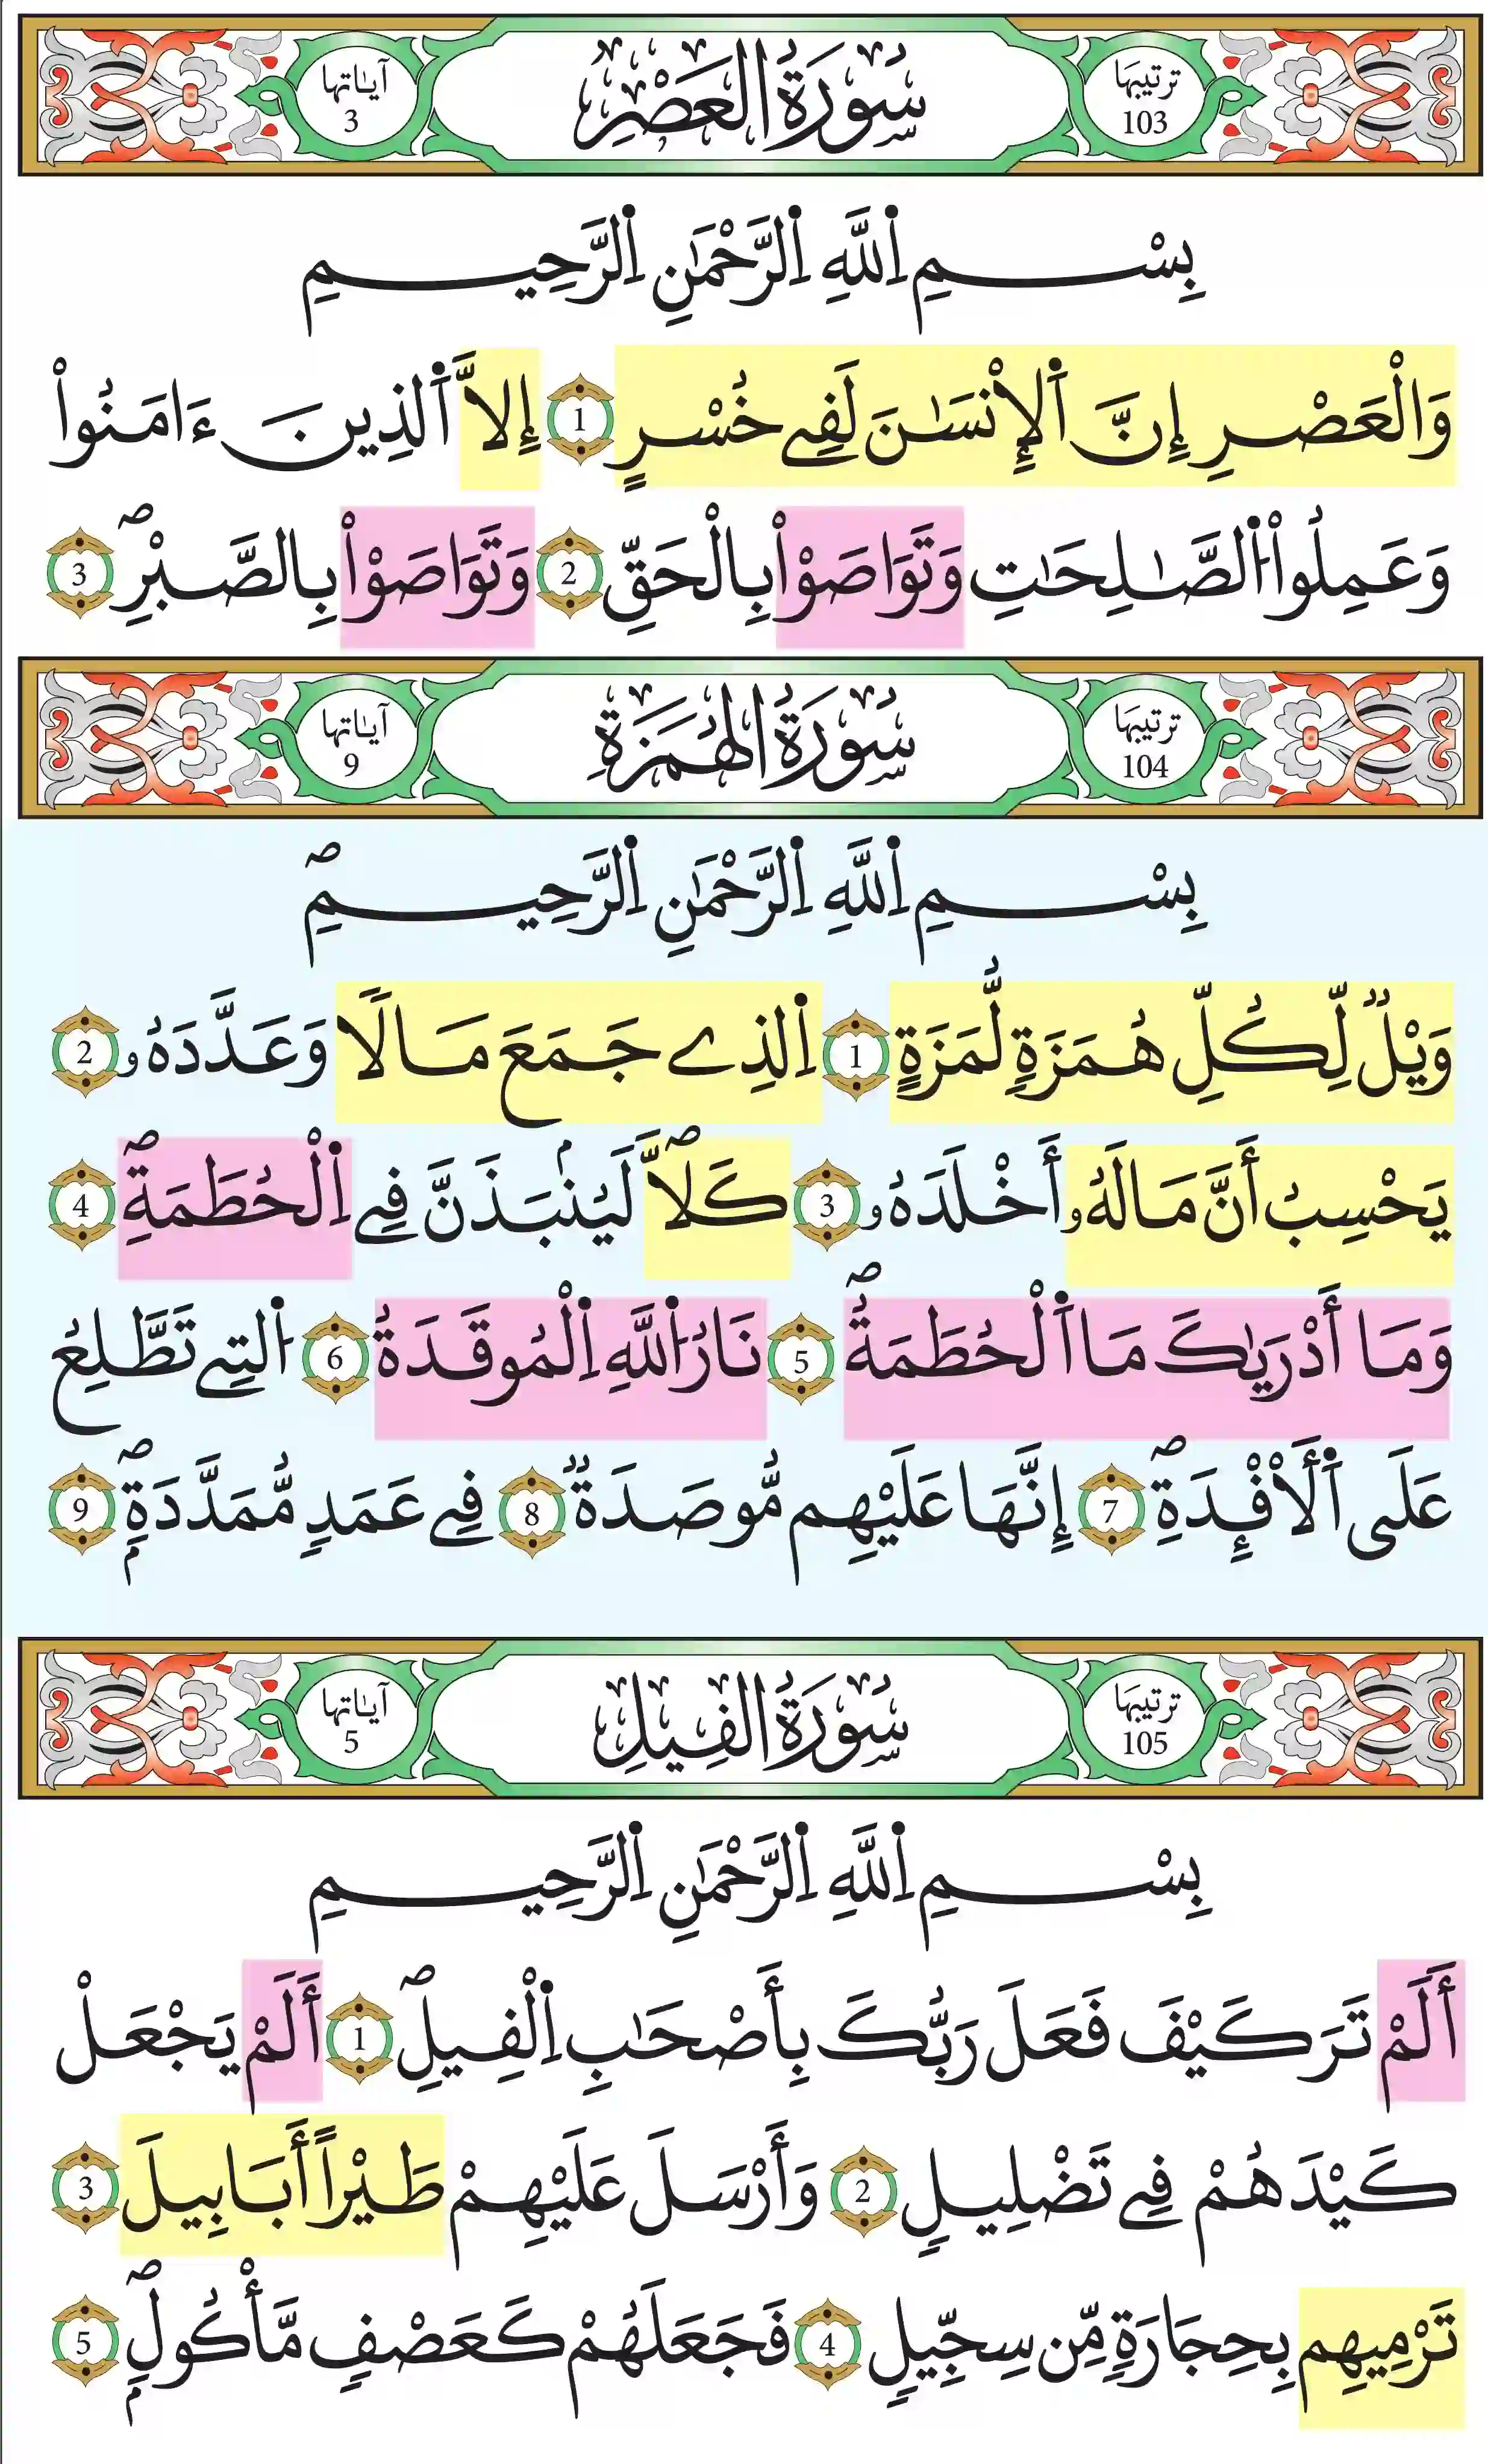 ترتيبها 103 سُورَةُ العَصْرِ آياتها 3
بِسْمِ اِ۬للَّهِ اِ۬لرَّحْمَٰنِ اِ۬لرَّحِيمِ
وَالْعَصْرِ إِنَّ اَ۬لْإِنْسَٰنَ لَفِے خُسْرٍ 1 إِلاَّ اَ۬لذِينَ ءَامَنُواْ
وَعَمِلُواْ اُ۬لصَّٰلِحَٰتِ وَتَوَاصَوْاْ بِالْحَقِّ 2 وَتَوَاصَوْاْ بِالصَّبْرِۖ 3
ترتيبها 104 سُورَةُ الهُمَزَةِ آياتها 9
بِسْمِ اِ۬للَّهِ اِ۬لرَّحْمَٰنِ اِ۬لرَّحِيمِۖ
وَيْلٌ لِّكُلِّ هُمَزَةٍ لُّمَزَةٍ 1 اِ۬لذِے جَمَعَ مَالًا وَعَدَّدَهُۥ 2
يَحْسِبُ أَنَّ مَالَهُۥ أَخْلَدَهُۥ 3 كَلاَّۖ لَيُنۢبَذَنَّ فِے اِ۬لْحُطَمَةِۖ 4
وَمَا أَدْرَيٰكَ مَا اَ۬لْحُطَمَةُۖ 5 نَارُ اُ۬للَّهِ اِ۬لْمُوقَدَةُ 6 اُ۬لتِے تَطَّلِعُ
عَلَى اَ۬لَأفْـِٕدَةِۖ 7 إِنَّهَا عَلَيْهِم مُّوصَدَةٌ 8 فِے عَمَدٍ مُّمَدَّدَةٍۢۖ 9
ترتيبها 105 سُورَةُ الفِيلِ آياتها 5
بِسْمِ اِ۬للَّهِ اِ۬لرَّحْمَٰنِ اِ۬لرَّحِيمِ
أَلَمْ تَرَ كَيْفَ فَعَلَ رَبُّكَ بِأَصْحَٰبِ اِ۬لْفِيلِۖ 1 أَلَمْ يَجْعَلْ
كَيْدَهُمْ فِے تَضْلِيلٍ 2 وَأَرْسَلَ عَلَيْهِمْ طَيْراً أَبَابِيلَ 3
تَرْمِيهِم بِحِجَارَةٍ مِّن سِجِّيلٍ 4 فَجَعَلَهُمْ كَعَصْفٍ مَّأْكُولٍۢۖ 5